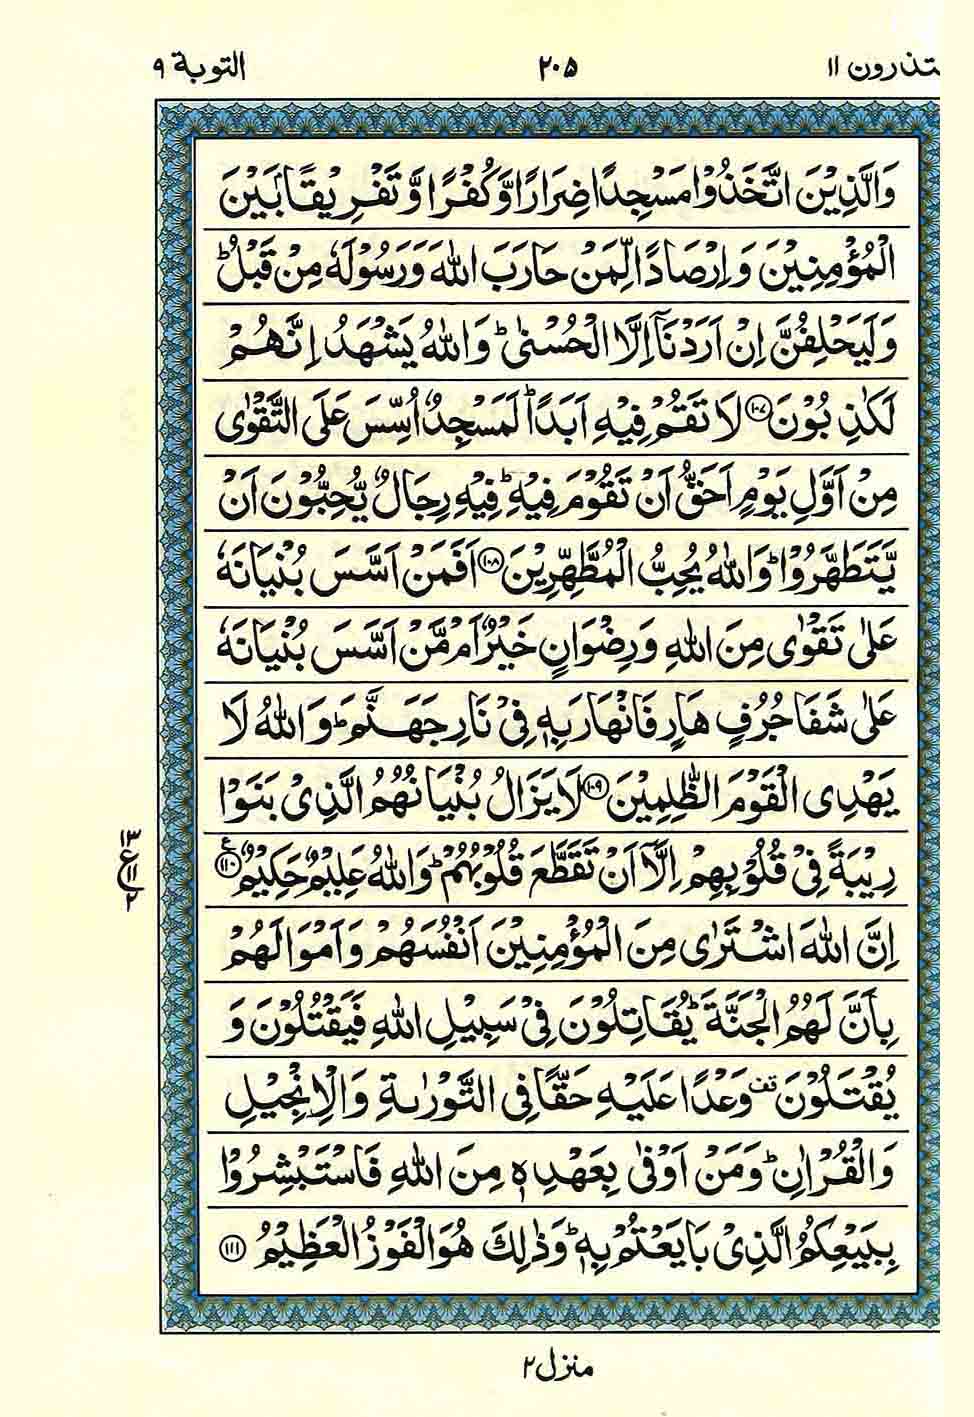 تذرون ۱۱
۲۰۵
التوبة ۹
وَالَّذِيْنَ اتَّخَذُوْا مَسْجِدًا ضِرَارًا وَّكُفْرًا وَّتَفْرِيْقًۢا بَيْنَ
الْمُؤْمِنِيْنَ وَاِرْصَادًا لِّمَنْ حَارَبَ اللّٰهَ وَرَسُوْلَهٗ مِنْ قَبْلُ ؕ
وَلَيَحْلِفُنَّ اِنْ اَرَدْنَاۤ اِلَّا الْحُسْنٰى ؕ وَاللّٰهُ يَشْهَدُ اِنَّهُمْ
لَكٰذِبُوْنَ ۱۰۷ لَا تَقُمْ فِيْهِ اَبَدًا ؕ لَمَسْجِدٌ اُسِّسَ عَلَى التَّقْوٰى
مِنْ اَوَّلِ يَوْمٍ اَحَقُّ اَنْ تَقُوْمَ فِيْهِ ؕ فِيْهِ رِجَالٌ يُّحِبُّوْنَ اَنْ
يَّتَطَهَّرُوْا ؕ وَاللّٰهُ يُحِبُّ الْمُطَّهِّرِيْنَ ۱۰۸ اَفَمَنْ اَسَّسَ بُنْيَانَهٗ
عَلٰى تَقْوٰى مِنَ اللّٰهِ وَرِضْوَانٍ خَيْرٌ اَمْ مَّنْ اَسَّسَ بُنْيَانَهٗ
عَلٰى شَفَا جُرُفٍ هَارٍ فَانْهَارَ بِهٖ فِيْ نَارِ جَهَنَّمَ ؕ وَاللّٰهُ لَا
يَهْدِى الْقَوْمَ الظّٰلِمِيْنَ ۱۰۹ لَا يَزَالُ بُنْيَانُهُمُ الَّذِىْ بَنَوْا
رِيْبَةً فِيْ قُلُوْبِهِمْ اِلَّاۤ اَنْ تَقَطَّعَ قُلُوْبُهُمْ ؕ وَاللّٰهُ عَلِيْمٌ حَكِيْمٌ ۱۱۰ ع
۱۳
ع ۱۱
۲
اِنَّ اللّٰهَ اشْتَرٰى مِنَ الْمُؤْمِنِيْنَ اَنْفُسَهُمْ وَاَمْوَالَهُمْ
بِاَنَّ لَهُمُ الْجَنَّةَ ؕ يُقَاتِلُوْنَ فِيْ سَبِيْلِ اللّٰهِ فَيَقْتُلُوْنَ وَ
يُقْتَلُوْنَ قف وَعْدًا عَلَيْهِ حَقًّا فِى التَّوْرٰىةِ وَالْاِنْجِيْلِ
وَالْقُرْاٰنِ ؕ وَمَنْ اَوْفٰى بِعَهْدِهٖ مِنَ اللّٰهِ فَاسْتَبْشِرُوْا
بِبَيْعِكُمُ الَّذِىْ بَايَعْتُمْ بِهٖ ؕ وَذٰلِكَ هُوَ الْفَوْزُ الْعَظِيْمُ ۱۱۱
منزل ۲